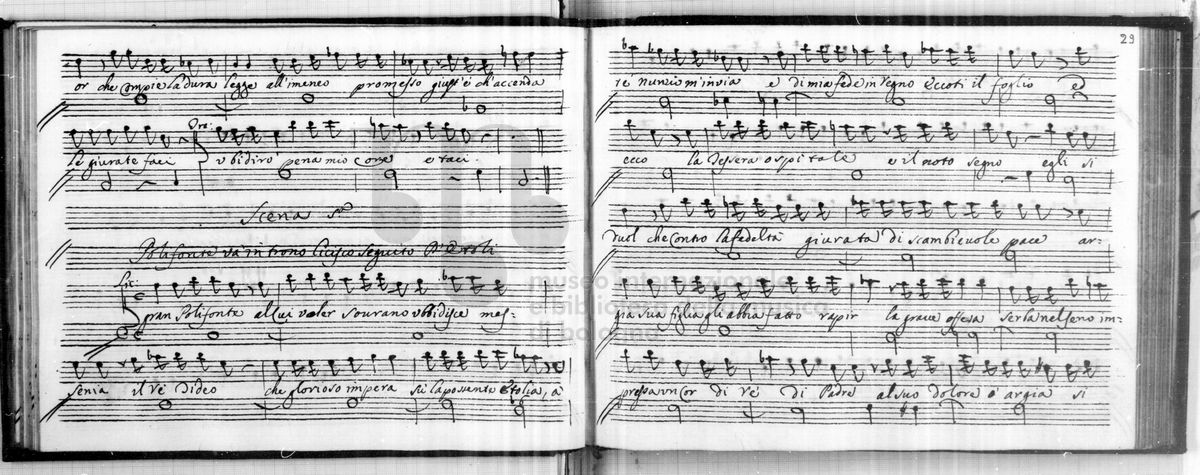 or che compie la dura legge all'imeneo promesso giust'è ch'accenda
Le giurate faci ubidiro pena mio core e taci.
Scena 5ª
Polifonte và in trono Licisco seguito d'Etoli
Lic:
gran Polifonte al cui voler sourano ubbidisce mes-
senia il rè Dideo che glorioso impera sù la possente Etolia, à
29
te nunzio m'invia e di mia fede in segno eccoti il foglio ed
ecco la Tessera ospitale e il noto segno egli si
duol che contro la fedeltà giurata di scambievole pace ar-
gia sua figlia gli abbia fatto rapir la grave offesa serba nel seno im-
pressa un cor di rè di Padre al suo dolore d'argia si
museo internazionale
e biblioteca della musica
di bologna